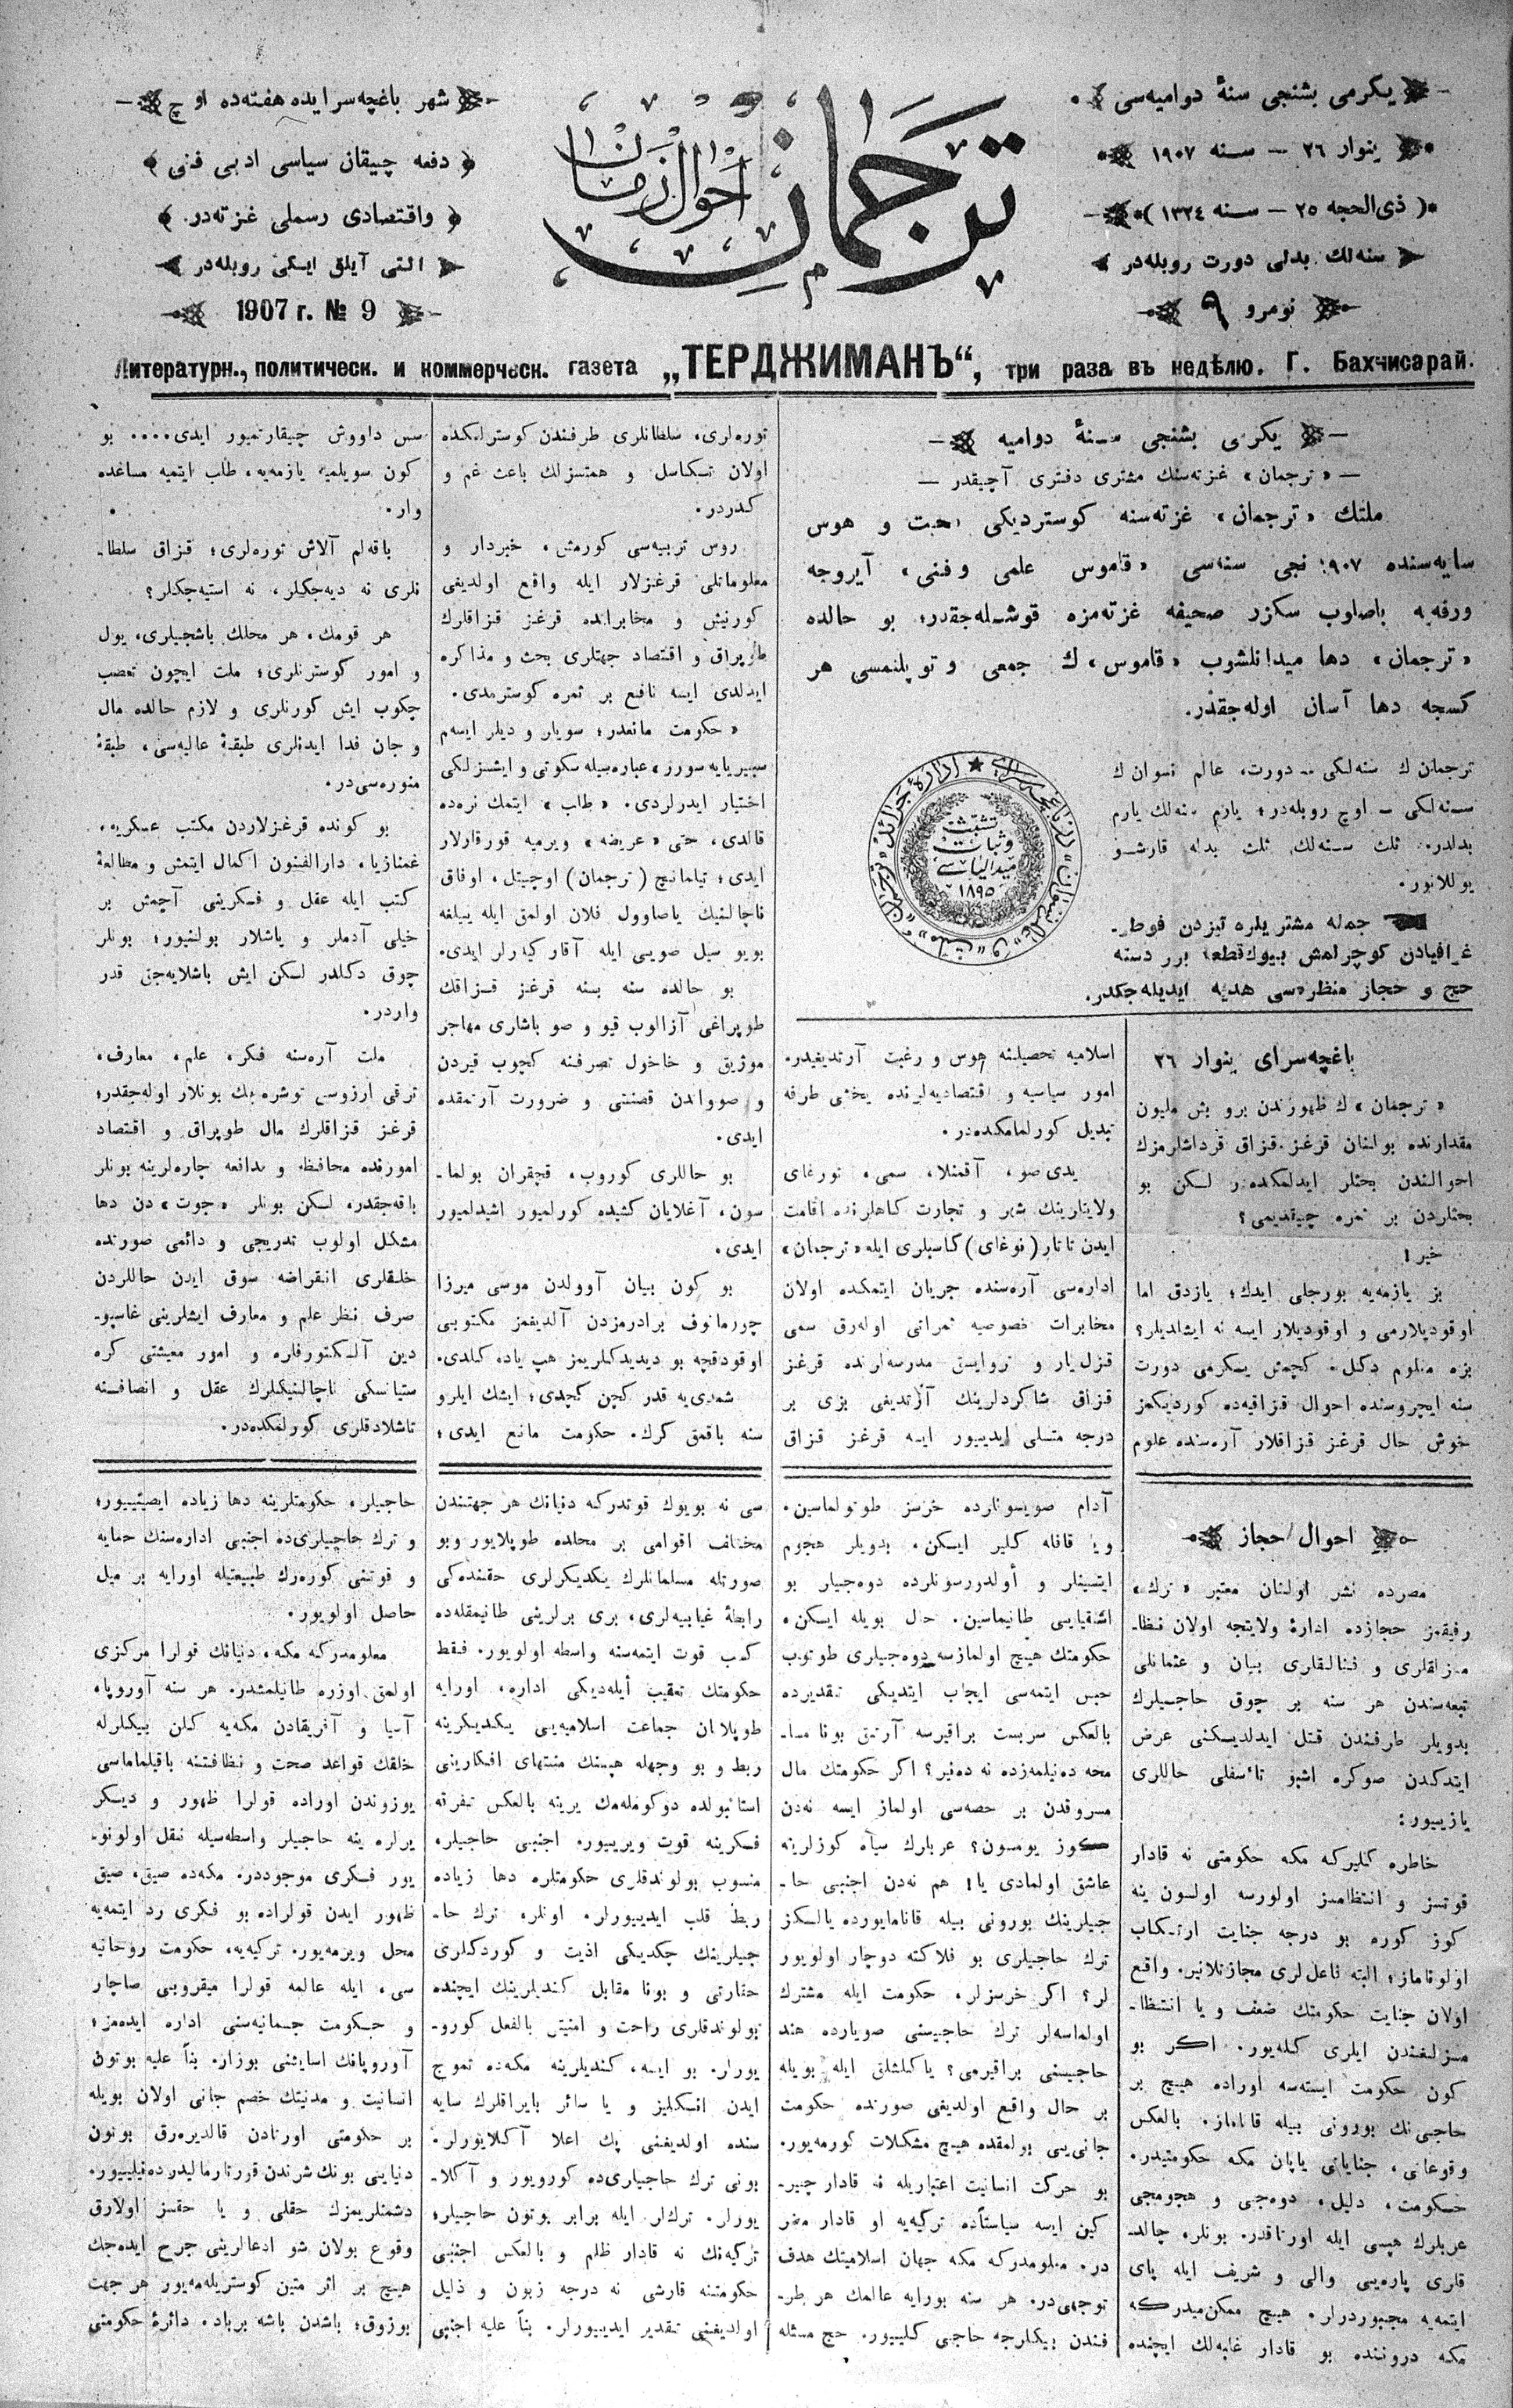 يكرمى بشنجى سنۀ دواميه‌سى
ينوار ٢٦ — سنه ١٩٠٧
(ذى‌الحجه ٢٥ — سنه ١٣٢٤)
سنه‌لك بدلى دورت روبله‌در
نومرو ٩
ترجمان
احوال زمان
شهر باغچه‌سرايده هفته‌ده اوچ
دفعه چيقان سياسى ادبى فنى
واقتصادى رسملى غزته‌در.
التى آيلق ايكى روبله‌در
1907 г. № 9
Литературн., политическ. и коммерческ. газета „ТЕРДЖИМАНЪ“, три раза въ недѣлю. Г. Бахчисарай.
يكرمى بشنجى سنۀ دواميه
— «ترجمان» غزته‌سنك مشترى دفترى آچيقدر —
ملتك «ترجمان» غزته‌سنه كوسترديكى محبت و هوس
سايه‌سنده ٩٠٧ نجى سنه‌سى «قاموس علمى وفنى» آيروجه
ورقه‌يه باصلوب سكزر صحيفه غزته‌مزه قوشله‌جقدر؛ بو حالده
«ترجمان» دها ميدانلشوب «قاموس»ك جمعى وتوپلنمسى هر
كسجه دها آسان اوله‌جقدر.
ترجمان ك سنه‌لكى — دورت، عالم نسوان ك
سنه‌لكى — اوچ روبله‌در؛ يارم سنه‌لك يارم
بدلدر. ثلث سنه‌لك ثلث بدله قارشو
يوللانور.
جمله مشتريلره تيزدن فوط-
غرافيادن كوچرلمش بيوك قطعه برر دسته
حج و حجاز منظره‌سى هديه ايديله‌جكدر.
تشبث
وثبات
١٨٩٥
باغچه‌سراى ينوار ٢٦
«ترجمان»ك ظهورندن برو بش مليون
مقدارنده بولنان قرغز-قزاق قرداشلرمزك
احوالندن بحثلر ايدلمكده‌در لكن بو
بحثلردن بر ثمره چيقديمى؟
خير!
بز يازمه‌يه بورجلى ايدك؛ يازدق اما
اوقوديلارمى و اوقوديلار ايسه نه ايشلديلر؟
بزه معلوم دكل. كچمش يكرمى دورت
سنه ايچروسنده احوال قزاقيه‌ده كورديكمز
خوش حال قرغز قزاقلار آره‌سنده علوم
اسلاميه تحصيلنه هوس و رغبت آرتديغيدر.
امور سياسيه و اقتصاديه‌لرنده يخشى طرفه
تبديل كورلمامكده‌در.
يدى صو، آقمنلا، سمى، تورغاى
ولايتلرينك شهر و تجارت كاهلرنده اقامت
ايدن تاتار (نوغاى) كاسبلرى ايله «ترجمان»
اداره‌سى آره‌سنده جريان ايتمكده اولان
مخابرات خصوصيه ثمراتى اوله‌رق سمى
قزل‌يار و ترويسق مدرسه‌لرنده قرغز
قزاق شاكردلرينك آرتديغى بزى بر
درجه متسلى ايدييور ايسه قرغز قزاق
توره‌لرى، سلطانلرى طرفندن كوسترلمكده
اولان تكاسل و همتسزلك باعث غم و
كدردر.
روس تربيه‌سى كورمش، خبردار و
معلوماتلى قرغزلار ايله واقع اولديغى
كورنيش و مخابراتده قرغز قزاقلرك
طوپراق و اقتصاد جهتلرى بحث و مذاكره
ايدلدى ايسه نافع بر ثمره كوسترمدى.
«حكومت مانعدر؛ سويلر و ديلر ايسه‌م
سبيريايه سورر» عباره‌سيله سكوتى و ايشسزلكى
اختيار ايدرلردى. «طلب» ايتمك نره‌ده
قالدى، حتى «عريضه» ويرميه قورقارلار
ايدى؛ تيلماچ (ترجمان) اوچيتل، اوفاق
ناچالنيك ياصاوول فلان اولمق ايله ييلغه
بويو سيل صويى ايله آقار كيدرلر ايدى.
بو حالده سنه بسنه قرغز قزاقك
طوپراغى آزالوب قيو و صو باشلرى مهاجر
موژيق و خاخول تصرفنه كچوب قيردن
و صوواندن قصنتى و ضرورت آرتمقده
ايدى.
بو حاللرى كوروب، قچقران بولما-
سون، آغلايان كشيده كورلميور اشيدلميور
ايدى.
بو كون بيان آوولدن موسى ميرزا
چورمانوف برادرمزدن آلديغمز مكتوبى
اوقودقچه بو ديديكلريمز هپ ياده كلدى.
شمدى‌يه قدر كچن كچدى؛ ايشك ايلرو
سنه باقمق كرك. حكومت مانع ايدى؛
سس داووش چيقارتميور ايدى.... بو
كون سويلميه يازمه‌يه، طلب ايتميه مساعده
وار.
باقه‌لم آلاش توره‌لرى؛ قزاق سلطا-
نلرى نه ديه‌جكلر، نه استيه‌جكلر؟
هر قومك، هر محلك باشجيلرى، يول
و امور كوسترنلرى؛ ملت ايچون تعصب
چكوب ايش كورنلرى و لازم حالده مال
و جان فدا ايدنلرى طبقۀ عاليه‌سى، طبقۀ
منوره‌سى‌در.
بو كونده قرغزلاردن مكتب عسكريه،
غمنازيا، دارالفنون اكمال ايتمش و مطالعۀ
كتب ايله عقل و فكرينى آچمش بر
خيلى آدملر و ياشلار بولنيور؛ بونلر
چوق دكلدر لكن ايش باشلايه‌جق قدر
واردر.
ملت آره‌سنه فكر، علم، معارف،
ترقى ارزوسى توشره‌جك بونلار اوله‌جقدر؛
قرغز قزاقلرك مال طوپراق و اقتصاد
امورنده محافظه و مدافعه چاره‌لرينه بونلر
باقه‌جقدر. لكن بونلر «جوت» دن دها
مشكل اولوب تدريجى و دائمى صورتده
خلقلرى انقراضه سوق ايدن حاللردن
صرف نظر علم و معارف ايشلرينى غاسپو-
دين آلكتورفلره و امور معيشتى كره
ستيانسكى ناچالنيكلرك عقل و انصافنه
تاشلادقلرى كورلمكده‌در.
احوال حجاز
مصرده نشر اولنان معتبر «ترك»
رفيقمز حجازده ادارۀ ولايتجه اولان نظا-
مزلقلرى و فنالقلرى بيان و عثمانلى
تبعه‌سندن هر سنه بر چوق حاجيلرك
بدويلر طرفندن قتل ايدلديكنى عرض
ايتدكدن صوكره اشبو تأسفلى حاللرى
يازييور:
خاطره كليركه مكه حكومتى نه قادار
قوتسز و انتظامسز اولورسه اولسون ينه
كوز كوره بو درجه جنايت ارتكاب
اولوناماز؛ البته فاعل‌لرى مجازتلانير. واقع
اولان جنايت حكومتك ضعف و يا انتظا-
مسزلغندن ايلرى كله‌يور. اكر بو
كون حكومت ايسته‌سه اوراده هيچ بر
حاجى‌نك بورونى بيله قاناماز. بالعكس
وقوعاتى، جناياتى ياپان مكه حكومتيدر.
حكومت، دليل، دوه‌جى و هجومجى
عربلرك هپسى ايله اورتاقدر. بونلر، چالد-
قلرى پاره‌يى والى و شريف ايله پاى
ايتميه مجبوردرلر. هيچ ممكن‌ميدركه
مكه دروننده بو قادار غلبه‌لك ايچنده
آدام صويسونلرده خرسز طوتولماسين.
ويا قافله كلير ايسكن، بدويلر هجوم
ايتسينلر و أولدورسونلرده دوه‌جيلر بو
اشقيايى طانيماسين. حال بويله ايسكن،
حكومتك هيچ اولمازسه دوه‌جيلرى طوتوب
حبس ايتمه‌سى ايجاب ايتديكى تقديرده
بالعكس سربست براقيرسه آرتق بوكا مسا-
محه ده‌نيلمه‌زده نه ده‌نير؟ اكر حكومتك مال
مسروقدن بر حصه‌سى اولماز ايسه نه‌دن
كوز يومسون؟ عربلرك سياه كوزلرينه
عاشق اولمادى يا! هم نه‌دن اجنبى حا-
جيلرينك بورونى بيله قانامايورده يالكز
ترك حاجيلرى بو فلاكته دوچار اولويور
لر؟ اكر خرسزلر، حكومت ايله مشترك
اولماسه‌لر ترك حاجيسنى صويارده هند
حاجيسنى براقيرمى؟ ياكلشلق ايله بويله
بر حال واقع اولديغى صورتده حكومت
جانى‌يى بولمقده هيچ مشكلات كورمه‌يور.
بو حركت انسانيت اعتباريله نه قادار چير-
كين ايسه سياستاًده تركيه‌يه او قادار مضر
در. معلومدركه مكه جهان اسلاميتك هدف
توجهى‌در. هر سنه بورايه عالمك هر طر-
فندن بيكلرجه حاجى كلييور. حج مسئله
سى نه بويوك قوتدركه دنيانك هر جهتندن
مختلف اقوامى بر محلده طوپلايور وبو
صورتله مسلمانلرك يكديكرلرى حقنده‌كى
رابطۀ غيابيه‌لرى، برى برلرينى طانيمقله‌ده
كسب قوت ايتمه‌سنه واسطه اولويور. فقط
حكومتك تعقيب أيله‌ديكى اداره، اورايه
طوپلانان جماعت اسلاميه‌يى يكديكرينه
ربط و بو وجهله هپسنك منتهاى افكارينى
استانبولده دوكومله‌مك يرينه بالعكس تفرقه
فكرينه قوت ويرييور. اجنبى حاجيلر،
منسوب بولوندقلرى حكومتلره دها زياده
ربط قلب ايدييورلر. اونلر، ترك حا-
جيلرينك چكديكى اذيت و كوردكلرى
حقارتى و بوكا مقابل كنديلرينك ايچنده
بولوندقلرى راحت و امنيتى بالفعل كورو-
يورلر. بو ايسه، كنديلرينه مكه‌ده تموج
ايدن انكليز و يا سائر بايراقلرك سايه
سنده اولديغنى پك اعلا آكلايورلر.
بونى ترك حاجيلرى‌ده كورويور و آكلا-
يورلر. ترك‌لر ايله برابر بوتون حاجيلر،
تركيه‌نك نه قادار ظلم و بالعكس اجنبى
حكومتنه قارشى نه درجه زبون و ذليل
اولديغنى تقدير ايدييورلر. بنأ عليه اجنبى
حاجيلر، حكومتلرينه دها زياده ايصينييور؛
و ترك حاجيلرى‌ده اجنبى اداره‌سنك حمايه
و قوتنى كوره‌رك طبيعتيله اورايه بر ميل
حاصل اولويور.
معلومدركه مكه، دنيانك قولرا مركزى
اولمق اوزره طانيلمشدر. هر سنه آوروپا،
آسيا و آفريقادن مكه‌يه كلن بيكلرله
خلقك قواعد صحت و نظافتنه باقيلماماسى
يوزوندن اوراده قولرا ظهور و ديكر
يرلره ينه حاجيلر واسطه‌سيله نقل اولونو-
يور فكرى موجوددر. مكه‌ده صيق، صيق
ظهور ايدن قولراده بو فكرى رد ايتمه‌يه
محل ويرمه‌يور. تركيه‌يه، حكومت روحانيه
سى، ايله عالمه قولرا ميقروبى صاچار
و حكومت جسمانيه‌سنى اداره ايده‌مز؛
آوروپانك اسايشنى بوزار. بنأ عليه بوتون
انسانيت و مدنيتك خصم جانى اولان بويله
بر حكومتى اورتادن قالديره‌رق بوتون
دنيايى بونك شرندن قورتارماليدر ده‌نيلييور.
دشمنلريمزك حقلى و يا حقسز اولارق
وقوع بولان شو ادعالرينى جرح ايده‌جك
هيچ بر اثر متين كوستريله‌مه‌يور هر جهت
بوزوق؛ باشدن باشه برباد. دائرۀ حكومتى